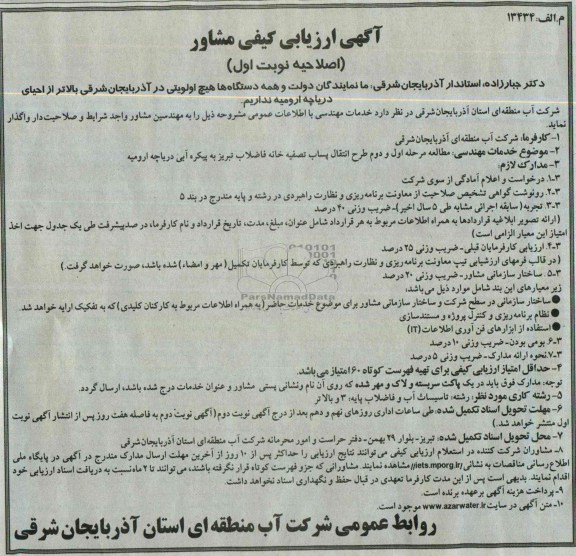 م.الف: ۱۳۴۳۴
آگهی ارزیابی کیفی مشاور
(اصلاحیه نوبت اول)
دکتر جبارزاده، استاندار آذربایجان شرقی: ما نمایندگان دولت و همه دستگاه‌ها هیچ اولویتی در آذربایجان شرقی بالاتر از احیای
دریاچه ارومیه نداریم.
شرکت آب منطقه‌ای استان آذربایجان شرقی در نظر دارد خدمات مهندسی با اطلاعات عمومی مشروحه ذیل را به مهندسین مشاور واجد شرایط و صلاحیت‌دار واگذار
نماید.
۱- کارفرما: شرکت آب منطقه‌ای آذربایجان شرقی
۲- موضوع خدمات مهندسی: مطالعه مرحله اول و دوم طرح انتقال پساب تصفیه خانه فاضلاب تبریز به پیکره آبی دریاچه ارومیه
۳- مدارک لازم:
۳-۱. درخواست و اعلام آمادگی از سوی شرکت
۳-۲. رونوشت گواهی تشخیص صلاحیت از معاونت برنامه‌ریزی و نظارت راهبردی در رشته و پایه مندرج در بند ۵
۳-۳. تجربه (سابقه اجرائی مشابه طی ۵ سال اخیر)- ضریب وزنی ۴۰ درصد
(ارائه تصویر ابلاغیه قراردادها به همراه اطلاعات مربوط به هر قرارداد شامل عنوان، مبلغ، مدت، تاریخ قرارداد و نام کارفرما، درصد پیشرفت طی یک جدول جهت اخذ
امتیاز این معیار الزامی است)
۳-۴. ارزیابی کارفرمایان قبلی- ضریب وزنی ۲۵ درصد
(در قالب فرمهای ارزشیابی تیپ معاونت برنامه‌ریزی و نظارت راهبردی که توسط کارفرمایان تکمیل (مهر و امضاء) شده باشد، صورت خواهد گرفت.)
۳-۵. ساختار سازمانی مشاور- ضریب وزنی ۲۰ درصد
زیر معیارهای این بند شامل موارد ذیل می‌باشد:
● ساختار سازمانی در سطح شرکت و ساختار سازمانی مشاور برای موضوع خدمات حاضر (به همراه اطلاعات مربوط به کارکنان کلیدی) که به تفکیک ارایه خواهد شد
● نظام برنامه‌ریزی و کنترل پروژه و مستندسازی
● استفاده از ابزارهای فن آوری اطلاعات (IT)
۳-۶. بومی بودن- ضریب وزنی ۱۰ درصد
۳-۷. نحوه ارائه مدارک- ضریب وزنی ۵ درصد
۴- حداقل امتیاز ارزیابی کیفی برای تهیه فهرست کوتاه ۶۰ امتیاز می‌باشد.
توجه: مدارک فوق باید در یک پاکت سربسته و لاک و مهر شده که روی آن نام ونشانی پستی مشاور و عنوان خدمات درج شده باشد، ارسال گردد.
۵- رشته کاری مورد نظر: رشته: تاسیسات آب و فاضلاب پایه: ۳ و بالاتر
۶- مهلت تحویل اسناد تکمیل شده: طی ساعات اداری روزهای نهم و دهم بعد از درج آگهی نوبت دوم (آگهی نوبت دوم به فاصله هفت روز پس از انتشار آگهی نوبت
اول منتشر خواهد شد.)
۷- محل تحویل اسناد تکمیل شده: تبریز- بلوار ۲۹ بهمن- دفتر حراست و امور محرمانه شرکت آب منطقه‌ای استان آذربایجان شرقی
۸- مشاوران شرکت کننده در استعلام ارزیابی کیفی می‌توانند نتایج ارزیابی را حداکثر پس از ۱۰ روز از آخرین مهلت ارسال مدارک مندرج در آگهی در پایگاه ملی
اطلاع رسانی مناقصات به نشانی //iets.mporg.ir مشاهده نمایند. مشاورانی که جزو فهرست کوتاه قرار نگرفته باشند، می‌توانند تا ۲ ماه نسبت به دریافت اسناد ارزیابی خود
اقدام نمایند. بدیهی است پس از این مدت کارفرما تعهدی در قبال حفظ و نگهداری اسناد نخواهد داشت.
۹- پرداخت هزینه آگهی برعهده برنده است.
۱۰- متن آگهی در سایت www.azarwater.ir موجود است.
روابط عمومی شرکت آب منطقه ای استان آذربایجان شرقی
ParsNamadData